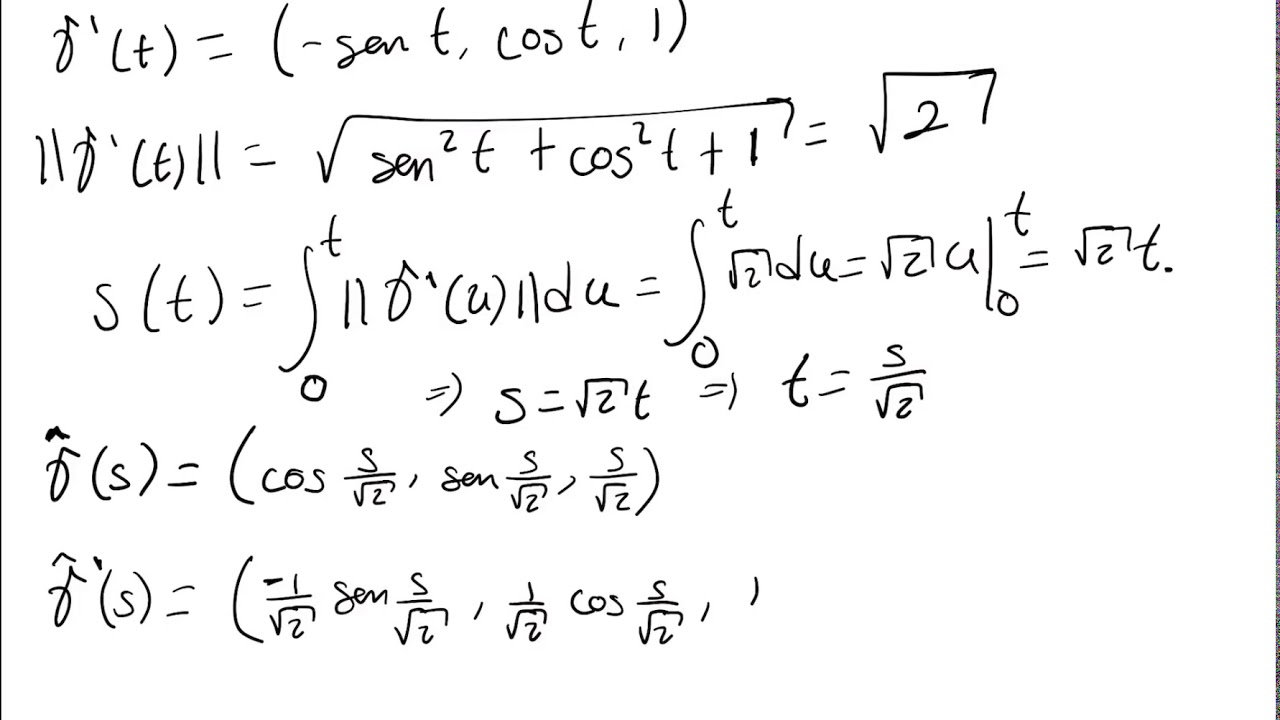 γ'(t) = (-sen t, cos t, 1)
||γ'(t)|| = √(sen²t + cos²t + 1) = √2
s(t) = ∫₀ᵗ ||γ'(u)||du = ∫₀ᵗ √2 du = √2 u|₀ᵗ = √2 t.
⇒ s = √2 t ⇒ t = s/√2
γ̂(s) = (cos s/√2, sen s/√2, s/√2)
γ̂'(s) = (-1/√2 sen s/√2, 1/√2 cos s/√2,